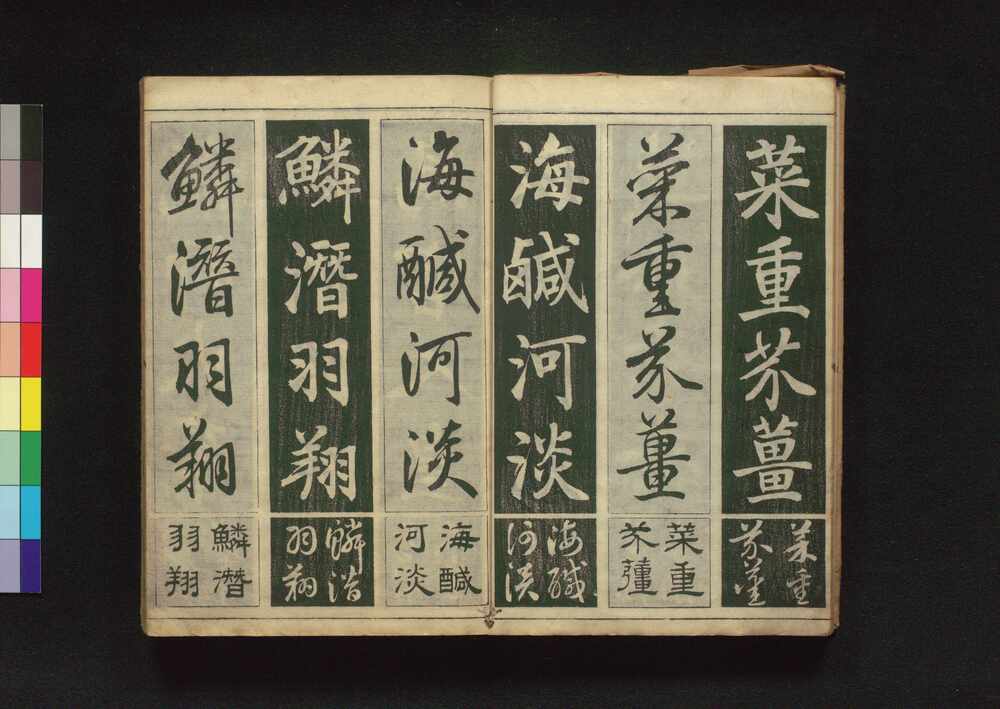 菜重芥薑
菜重
芥薑
菜重芥薑
菜重
芥薑
海鹹河淡
海鹹
河淡
海醎河淡
海醎
河淡
鱗潛羽翔
鱗潛
羽翔
鱗潛羽翔
鱗潛
羽翔